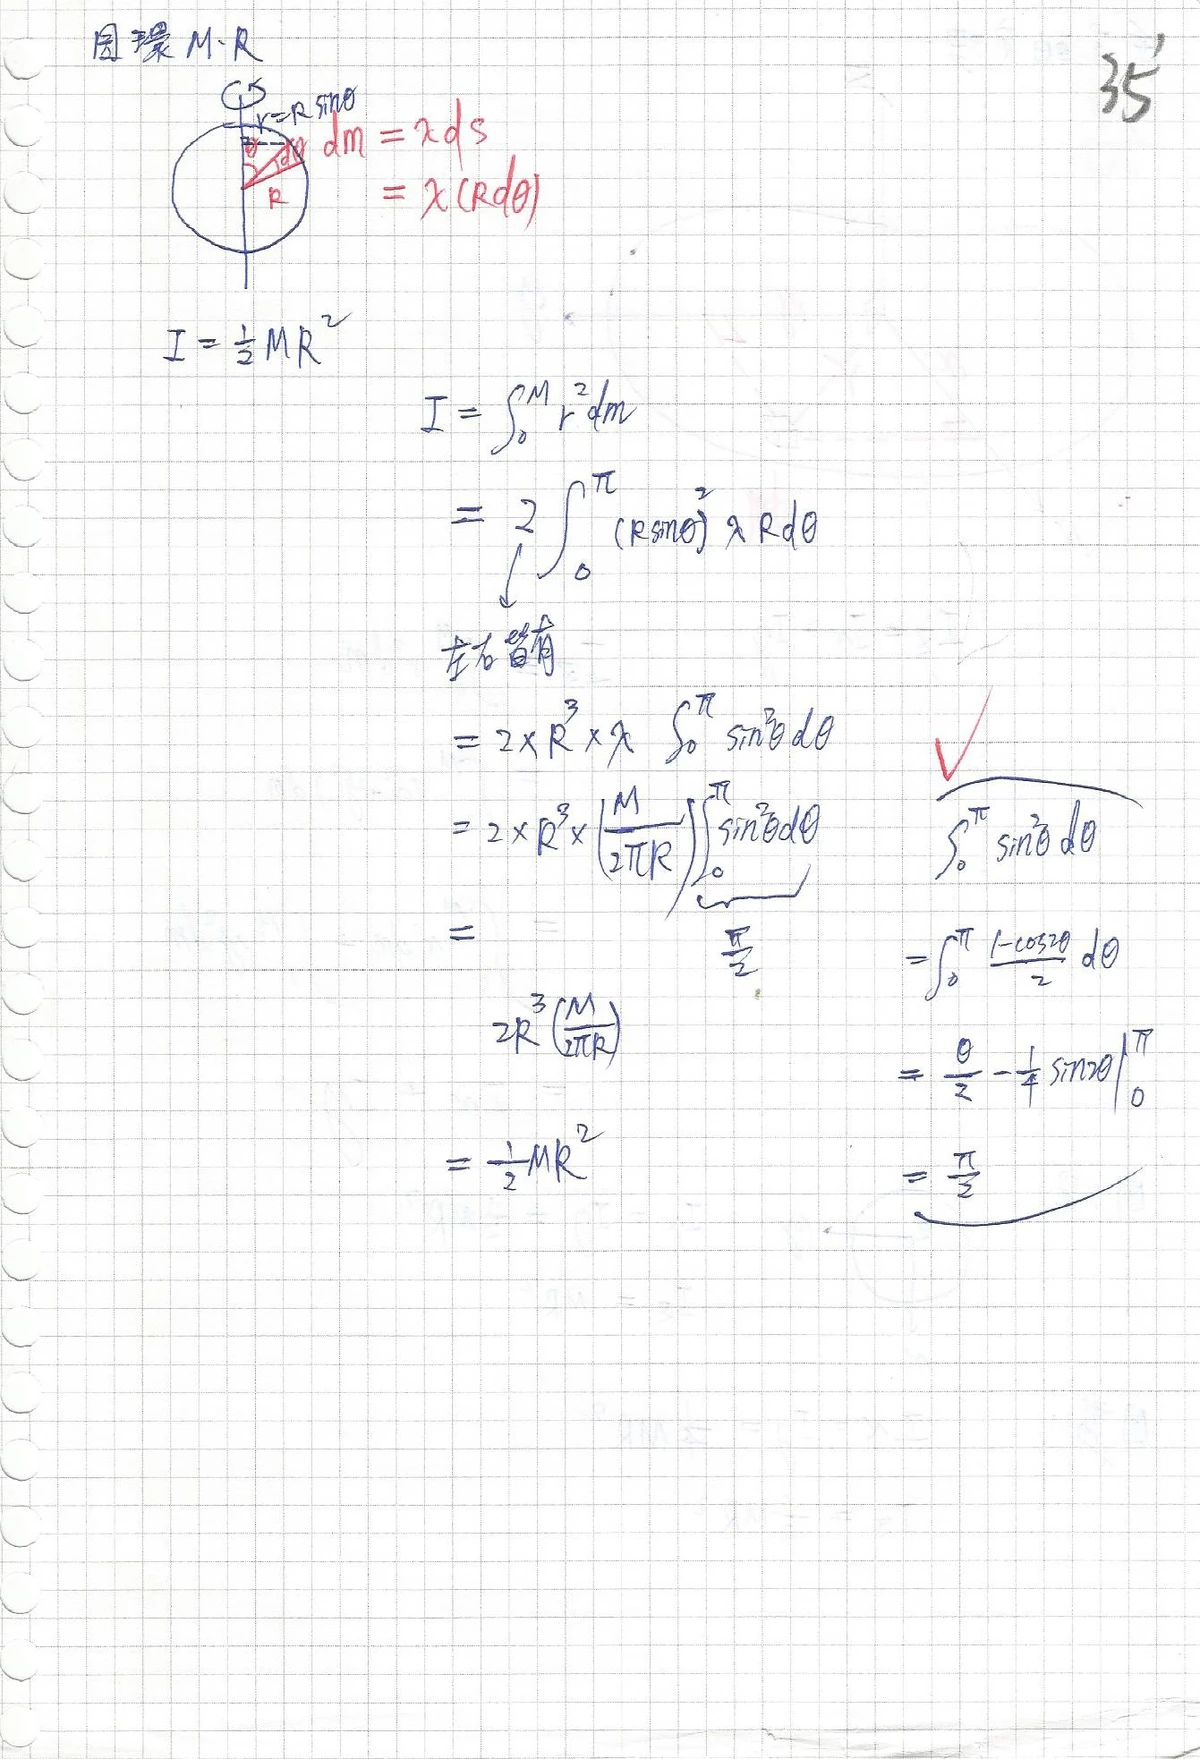 圓環 M.R
35'
r=R sinθ
θ dθ
R
dm = λds
= λ(Rdθ)
I = 1/2 MR²
I = ∫₀^M r²dm
= 2 ∫₀^π (Rsinθ)² λ R dθ
左右皆有
= 2×R³×λ ∫₀^π sin²θ dθ
= 2×R³×(M/2πR) ∫₀^π sin²θdθ
π/2
=
2R³(M/2πR)
= 1/2 MR²
∫₀^π sin²θ dθ
= ∫₀^π (1-cos2θ)/2 dθ
= θ/2 - 1/4 sin2θ |₀^π
= π/2